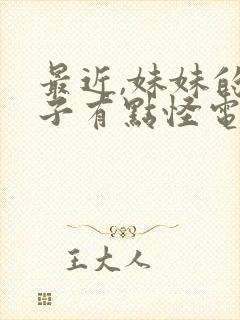 最近,妹妹的
子有點怪電
王大人